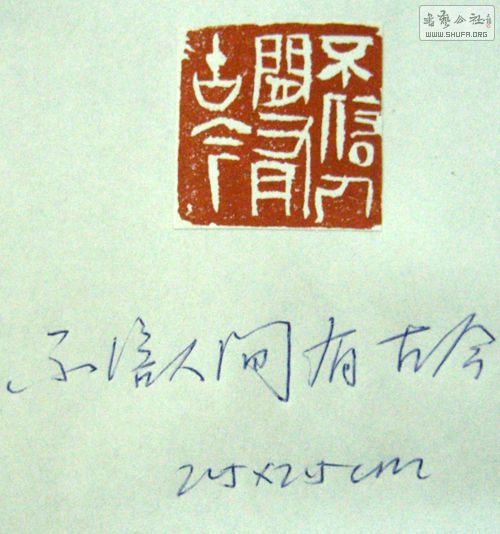 书艺公社
WWW.SHUFA.ORG
不信人
間有
古今
不信人间有古今
2.5×2.5cm